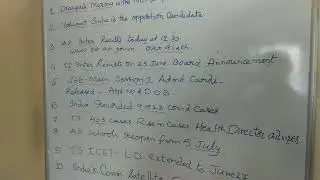 1. Draupadi Murmu is the
2. Yashwant Sinha is the opposition Candidate
3. AP Inter Results Today at 12.30
4. TS Inter Results on 25 June Board Announcement
5. JEE-Main Session 1 Admit Cards.
Released - Appl. No & D O B
6. India Recorded 9923 covid Cases
7. TS 403 cases Rise in Cases Health Director advises.
8. AP Schools Reopen from 5 July.
9. TS ICET - L.D extended to June 27
10 India's Comm. Satellite